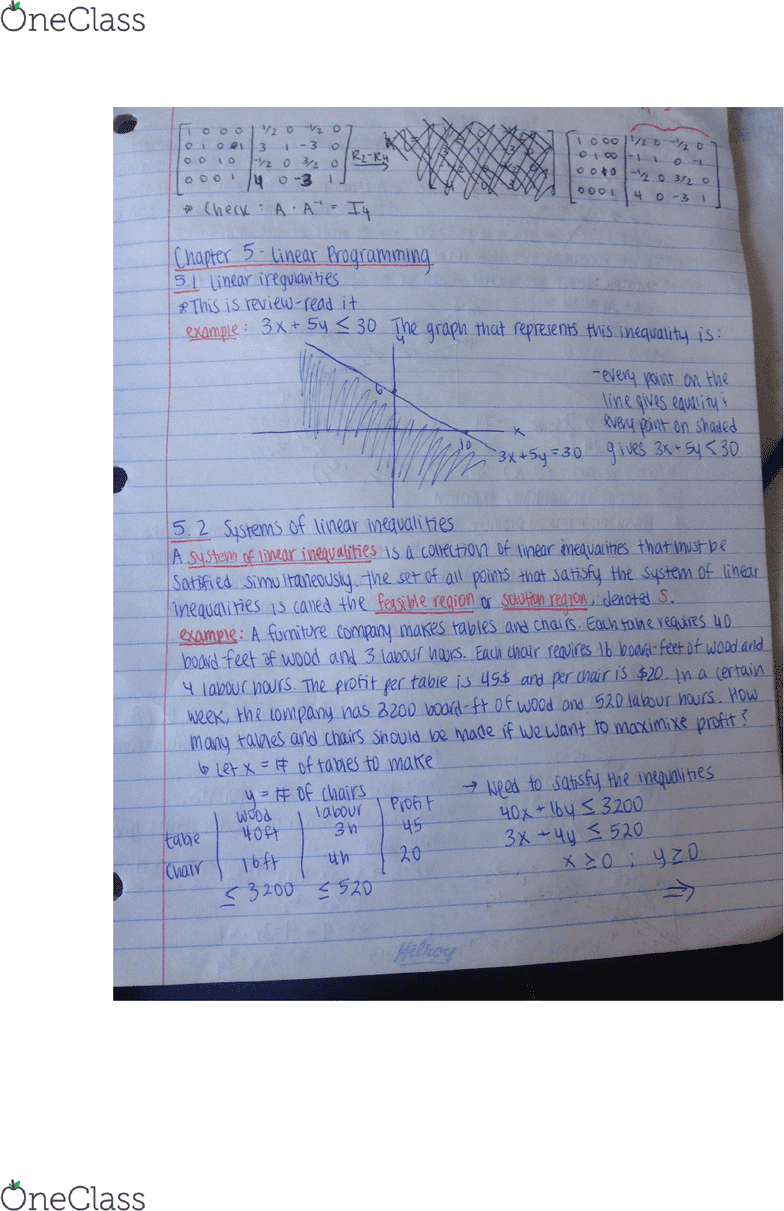 OneClass
1 0 0 0 | 1/2 0 -1/2 0
0 1 0 1 | 3 1 -3 0
0 0 1 0 | -1/2 0 3/2 0
0 0 0 1 | 4 0 -3 1
R2-R4
1 0 0 0 | 1/2 0 -1/2 0
0 1 0 0 | -1 1 0 -1
0 0 1 0 | -1/2 0 3/2 0
0 0 0 1 | 4 0 -3 1
* Check: A · A⁻¹ = I4
Chapter 5 - Linear Programming
5.1 linear iregularities
* This is review-read it
example: 3x + 5y ≤ 30 The graph that represents this inequality is:
y
6
x
10
3x+5y=30
-every point on the
line gives equality &
every point on shaded
gives 3x+5y<30
5.2 Systems of linear inequalities
A system of linear inequalities is a collection of linear inequalities that must be
Satisfied simultaneously. The set of all points that satisfy the system of linear
inequalities is called the feasible region or solution region, denoted S.
example: A furniture company makes tables and chairs. Each table requires 40
board-feet of wood and 3 labour hours. Each chair requires 16 board-feet of wood and
4 labour hours. The profit per table is 45$ and per chair is $20. In a certain
week, the company has 3200 board-ft of wood and 520 labour hours. How
many tables and chairs should be made if we want to maximixe profit?
↳ Let x = # of tables to make
y = # of chairs
wood | labour | Profit
table | 40ft | 3h | 45
Chair | 16ft | 4h | 20
≤ 3200 ≤ 520
→ Need to satisfy the inequalities
40x + 16y ≤ 3200
3x + 4y ≤ 520
x ≥ 0 ; y ≥ 0
⇒
Hilroy
OneClass